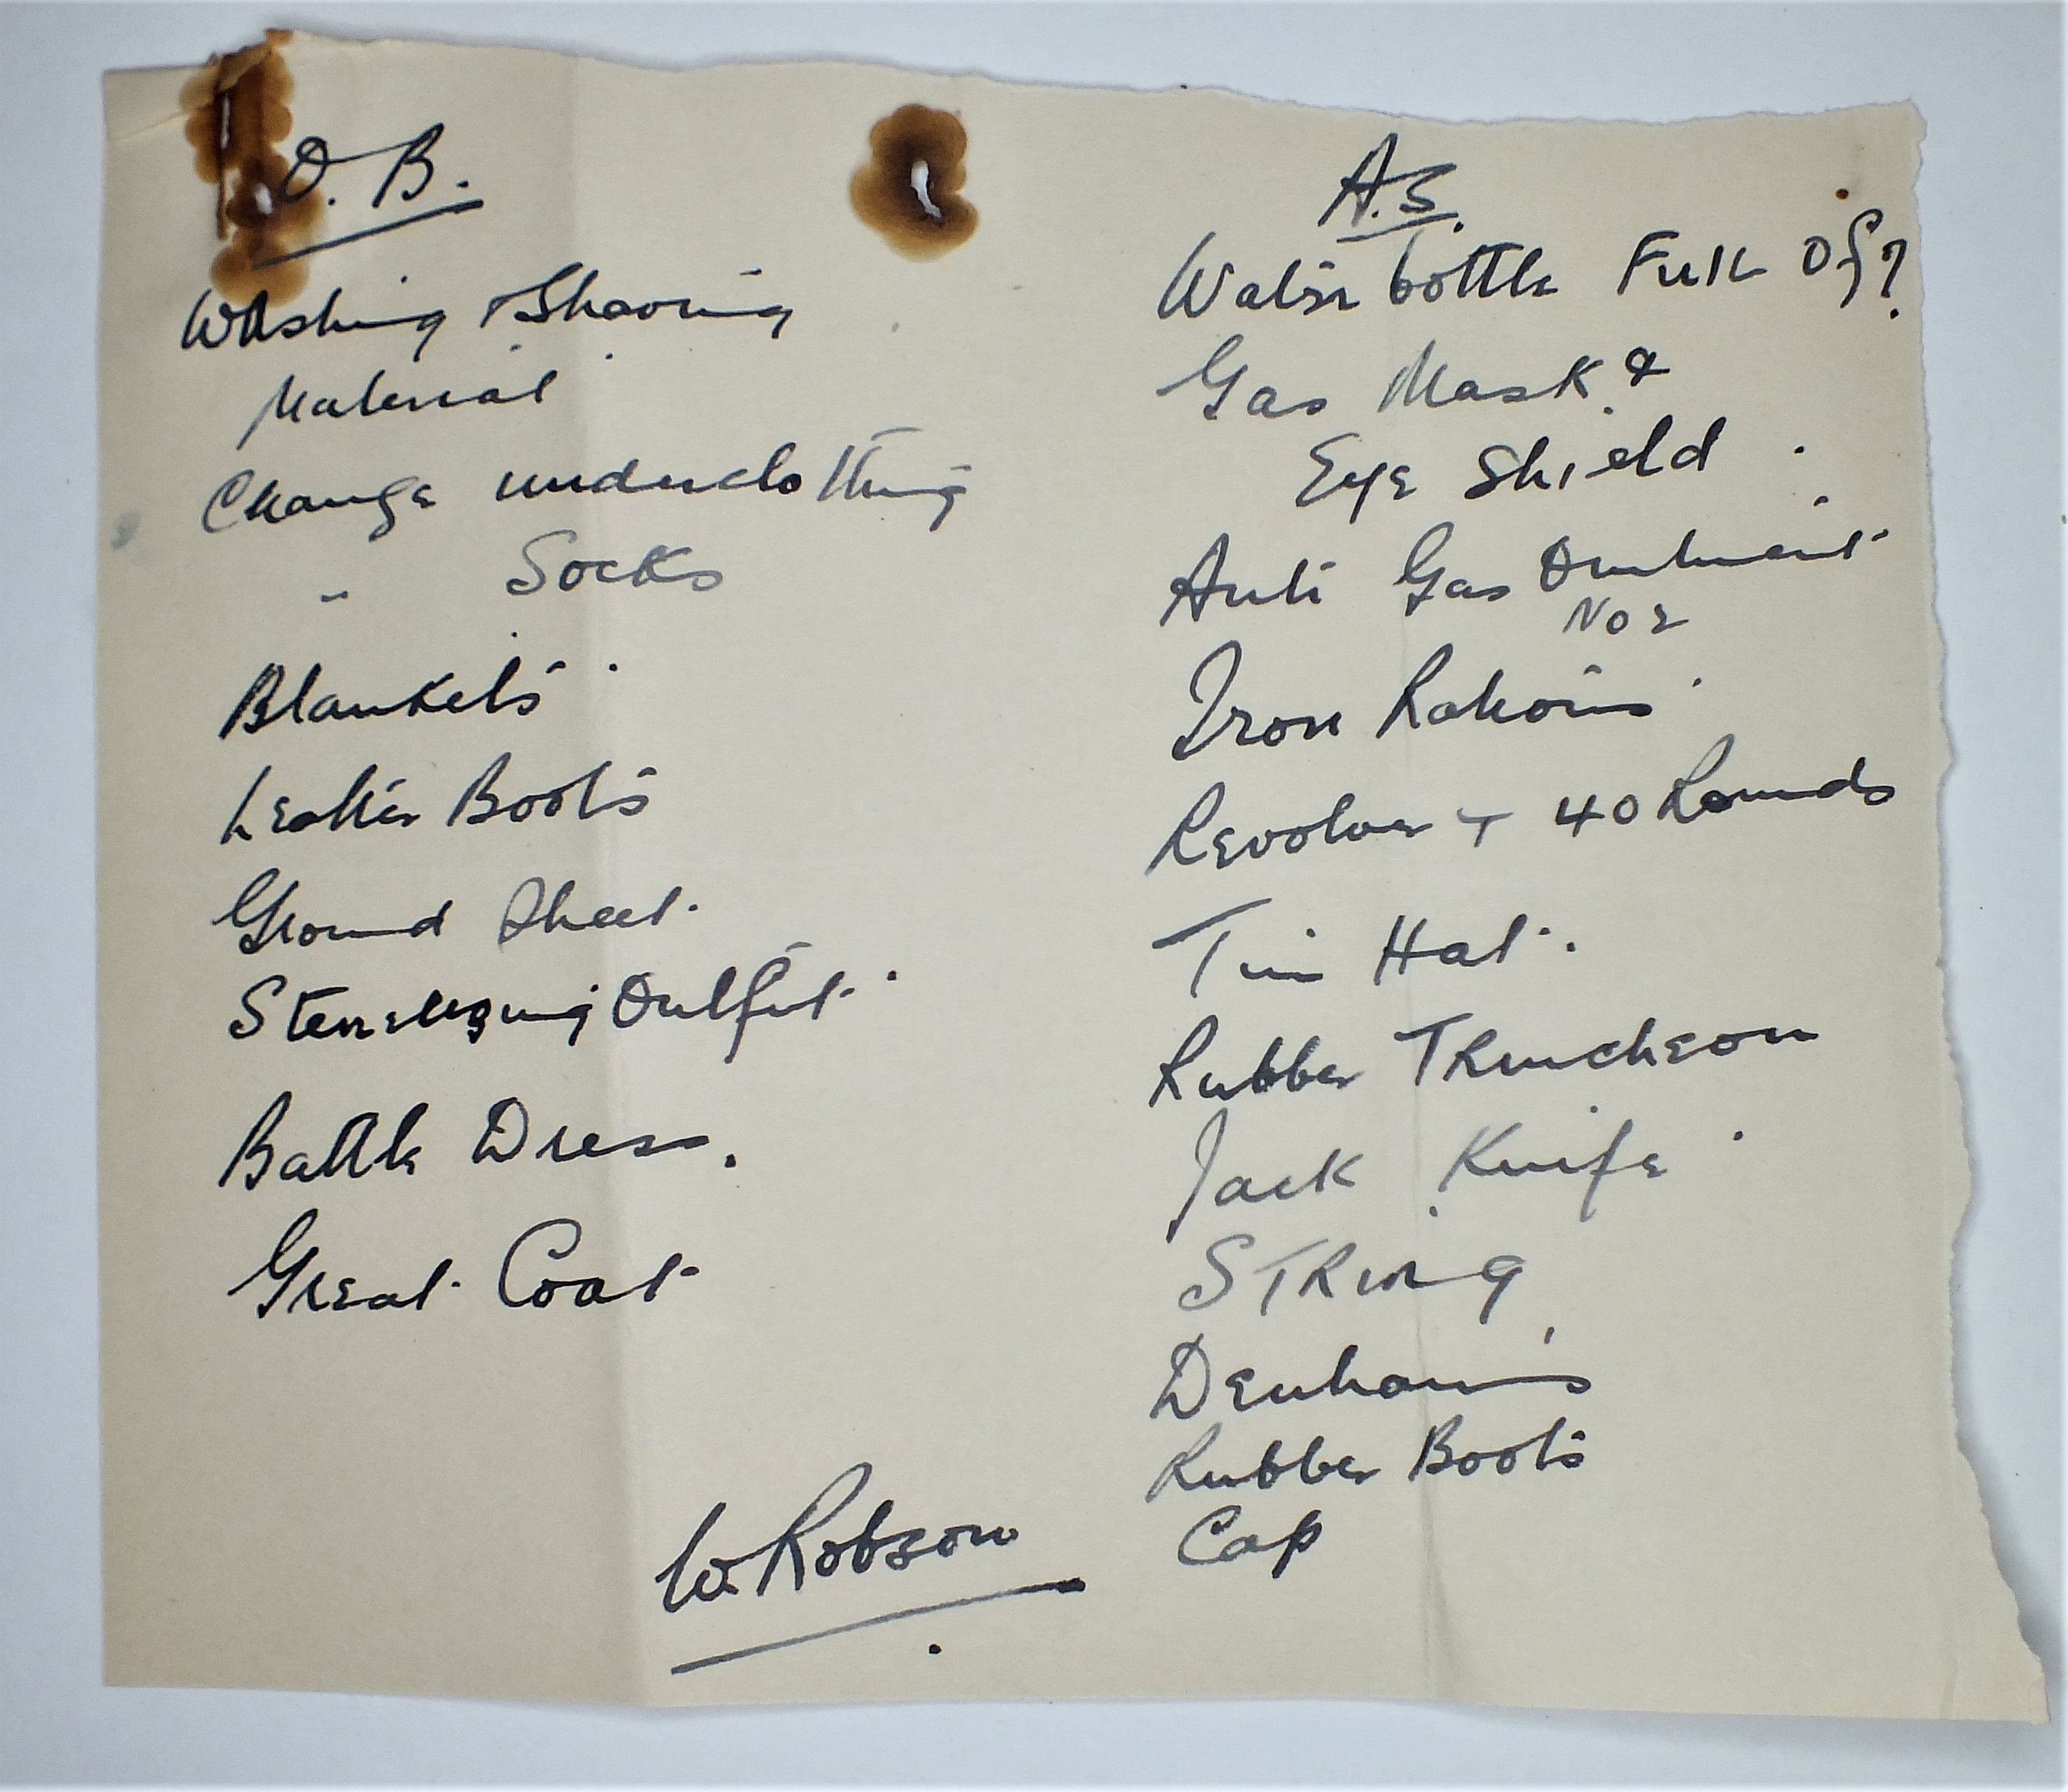 O. B.
Washing & Shaving
Material
Change underclothing
" Socks
Blankets
Leather Boots
Ground Sheet
Outfit
Battle Dress.
Great Coat
W. Robson
A.S.
Water bottle Full Of?
Gas Mask &
Eye Shield
Anti Gas Ointment
No 2
Iron Rations
Revolver + 40 Rounds
Tin Hat.
Rubber Truncheon
Jack Knife
String
Rubber Boots
Cap